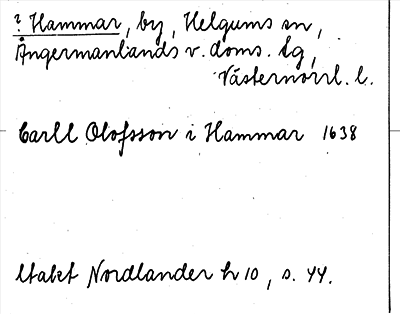 ? Hammar, by, Helgums sn,
Ångermanlands v. doms. tg,
Västernorrl. l.
Carll Olofsson i Hammar 1638
Utabet Nordlander h 10, s. 44.